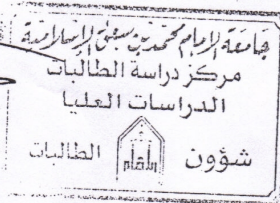 جامعة الإمام محمد بن سعود الإسلامية
مركز دراسة الطالبات
الدراسات العليا
شؤون الطالبات